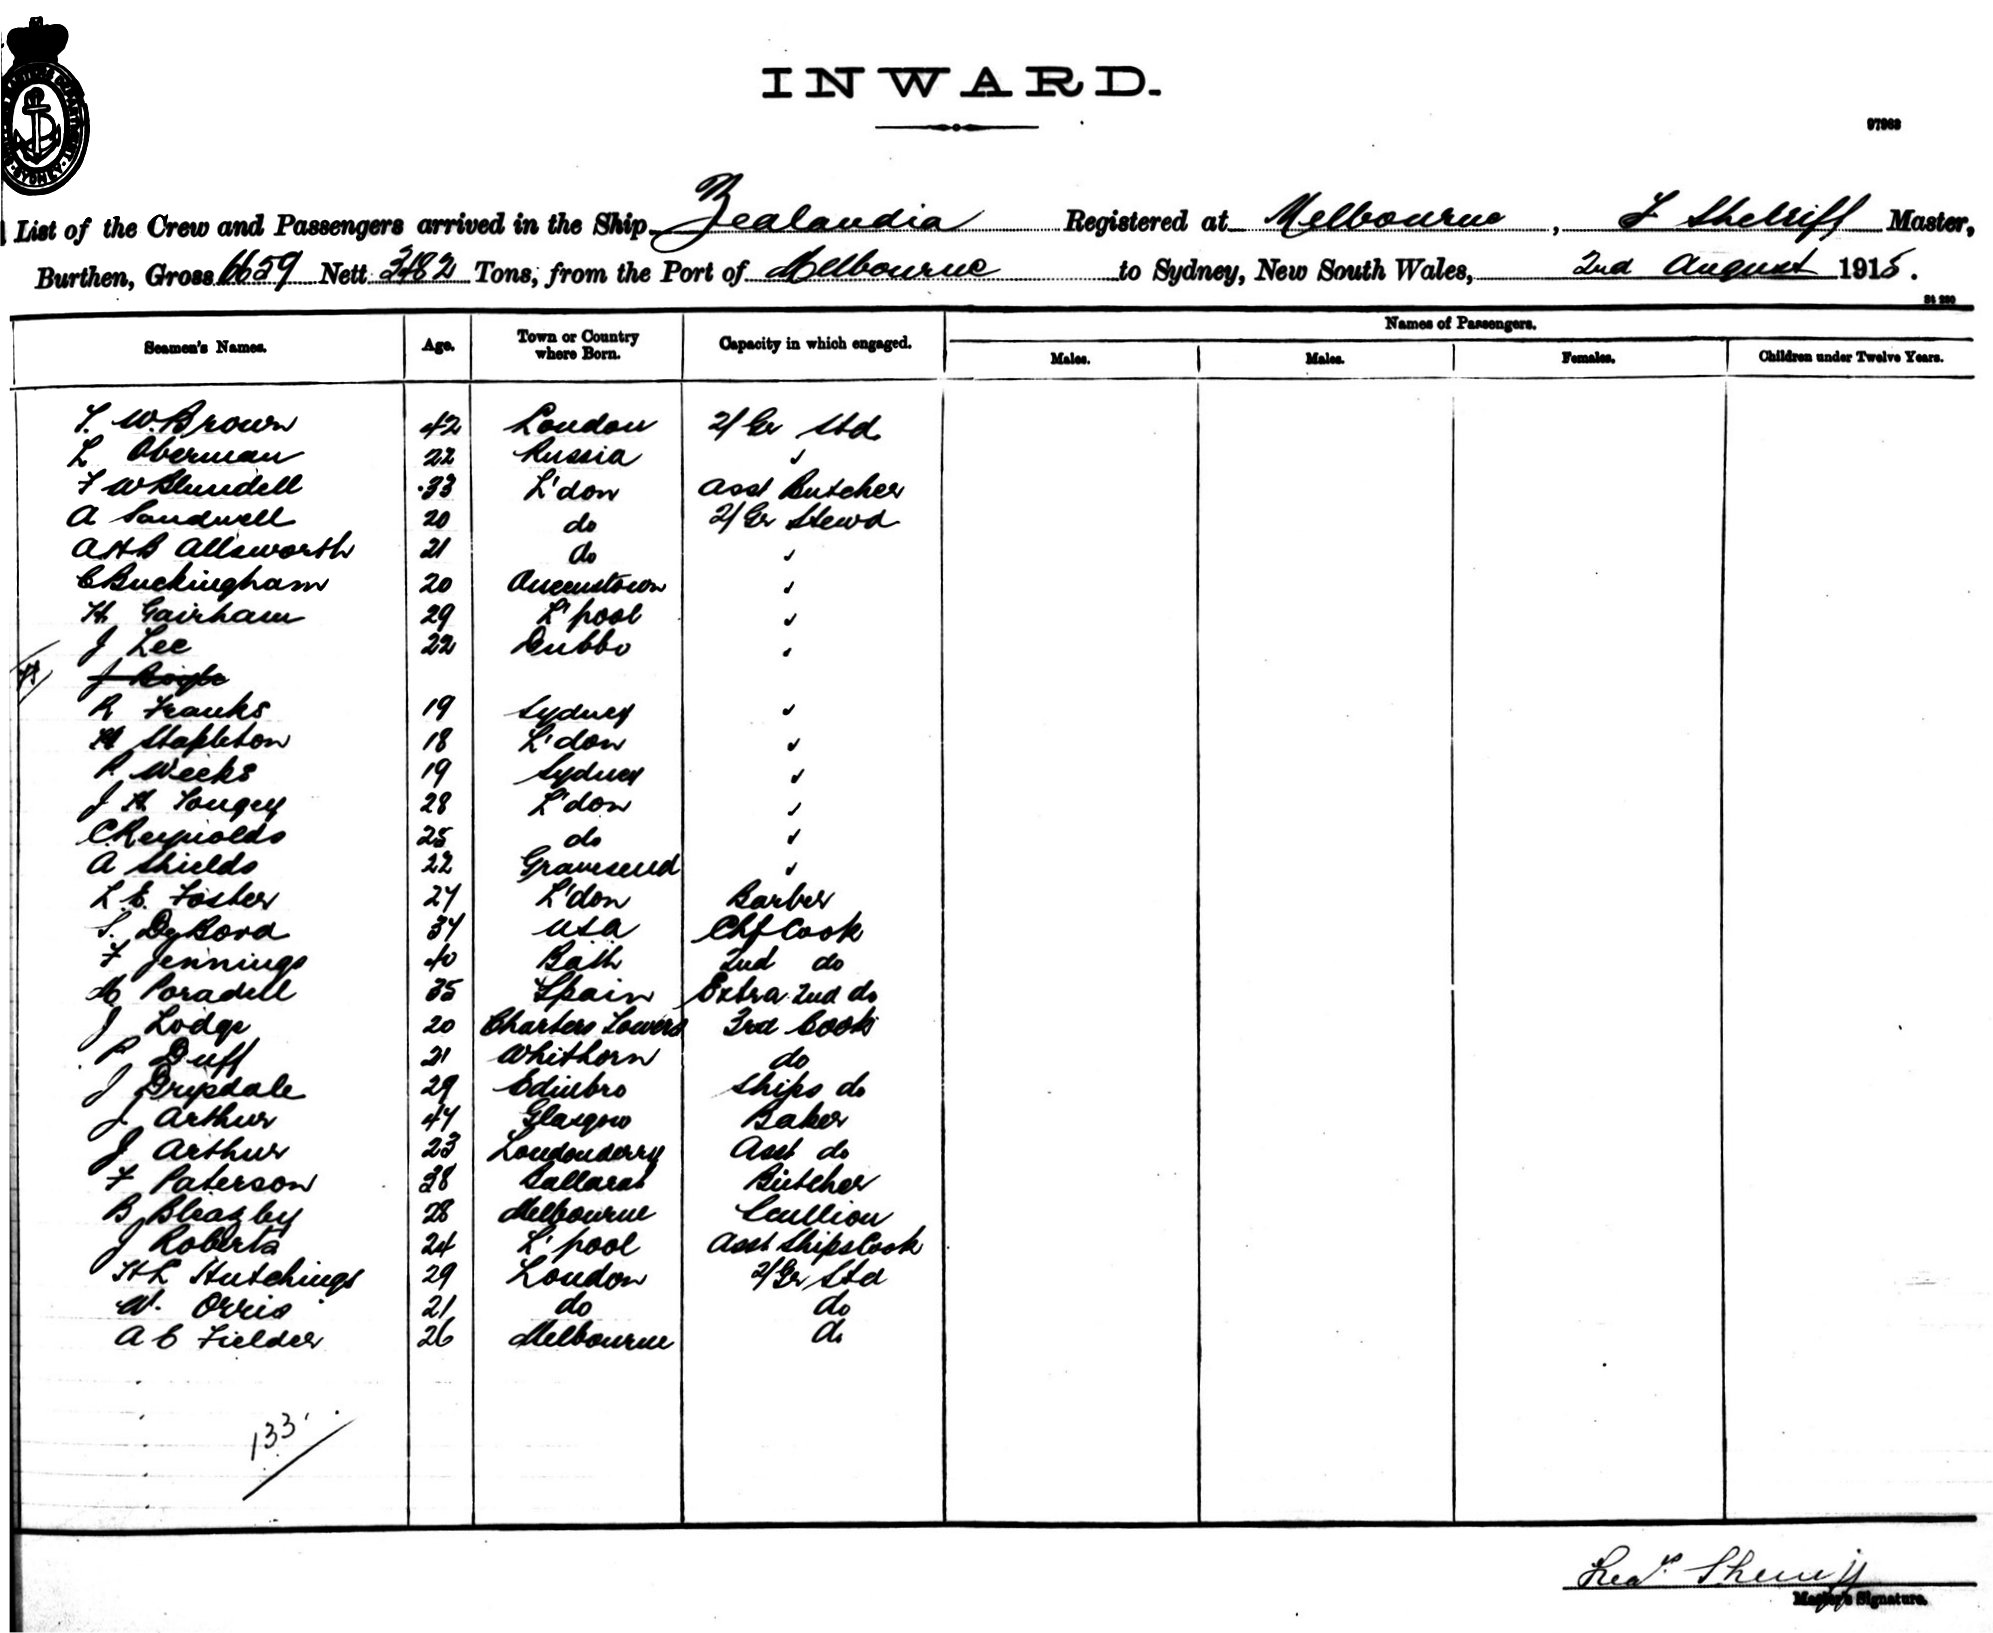 INWARD.
97963
List of the Crew and Passengers arrived in the Ship Zealandia Registered at Melbourne, F Sherriff Master,
Burthen, Gross 6659 Nett 3482 Tons, from the Port of Melbourne to Sydney, New South Wales, 2nd August 1915.
St 280
Seamen's Names. Age. Town or Country where Born. Capacity in which engaged. Names of Passengers.
Males. Males. Females. Children under Twelve Years.
T. W. Brown 42 London 2/Gr Std
L Oberman 22 Russia ✓
F W Blundell 33 L'don Asst Butcher
A Sandwell 20 do 2/Gr Stewd
A H B Allsworth 21 do ✓
C Buckingham 20 Queenstown ✓
H Gairham 29 L'pool ✓
J Lee 22 Dubbo ✓
J Boyle
R Franks 19 Sydney ✓
H Stapleton 18 L'don ✓
P. Weeks 19 Sydney ✓
J H Tonguy 28 L'don ✓
C Reynolds 25 do ✓
A Shields 22 Gravesend ✓
L. E. Foster 27 L'don Barber
S. DyBord 37 USA Chf Cook
F Jennings 40 Bath 2nd do
M Poradell 35 Spain Extra 2nd do
J Lodge 20 Charters Towers 3rd Cook
P Duff 21 Whithorn do
J Drysdale 29 Edinbro Ships do
J Arthur 47 Glasgow Baker
J Arthur 23 Londonderry Asst do
F Paterson 38 Ballarat Butcher
B Bleazby 28 Melbourne Scullion
J Roberts 24 L'pool Asst Ships Cook
H L Hutchings 29 London 2/Gr Std
W. Orris 21 do do
A E Fielder 26 Melbourne do
133
Fredk Sherriff
Master's Signature.